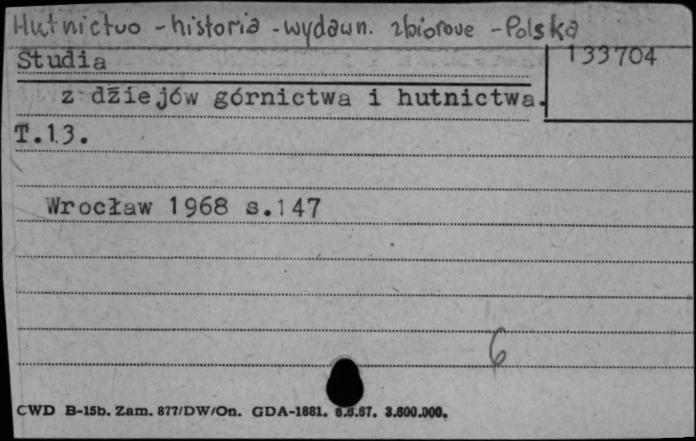 Hutnictwo - historia - wydawn. zbiorowe - Polska
Studia
133704
z dziejów górnictwa i hutnictwa.
T.13.
Wrocław 1968 s.147
6
CWD B-15b. Zam. 877/DW/On. GDA-1881. 6.6.67. 3.600.000.